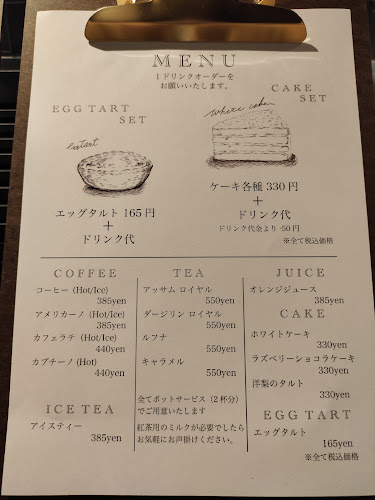 MENU
1ドリンクオーダーを
お願いいたします。
EGG TART
SET
eggtart
エッグタルト 165円
+
ドリンク代
CAKE
SET
whole cake
ケーキ各種 330円
+
ドリンク代
ドリンク代金より -50円
※全て税込価格
COFFEE
コーヒー (Hot/Ice)
385yen
アメリカーノ (Hot/Ice)
385yen
カフェラテ (Hot/Ice)
440yen
カプチーノ (Hot)
440yen
ICE TEA
アイスティー
385yen
TEA
アッサム ロイヤル
550yen
ダージリン ロイヤル
550yen
ルフナ
550yen
キャラメル
550yen
全てポットサービス (2杯分)
でご用意いたします
紅茶用のミルクが必要でしたら
お気軽にお声掛けください。
JUICE
オレンジジュース
385yen
CAKE
ホワイトケーキ
330yen
ラズベリーショコラケーキ
330yen
洋梨のタルト
330yen
EGG TART
エッグタルト
165yen
※全て税込価格